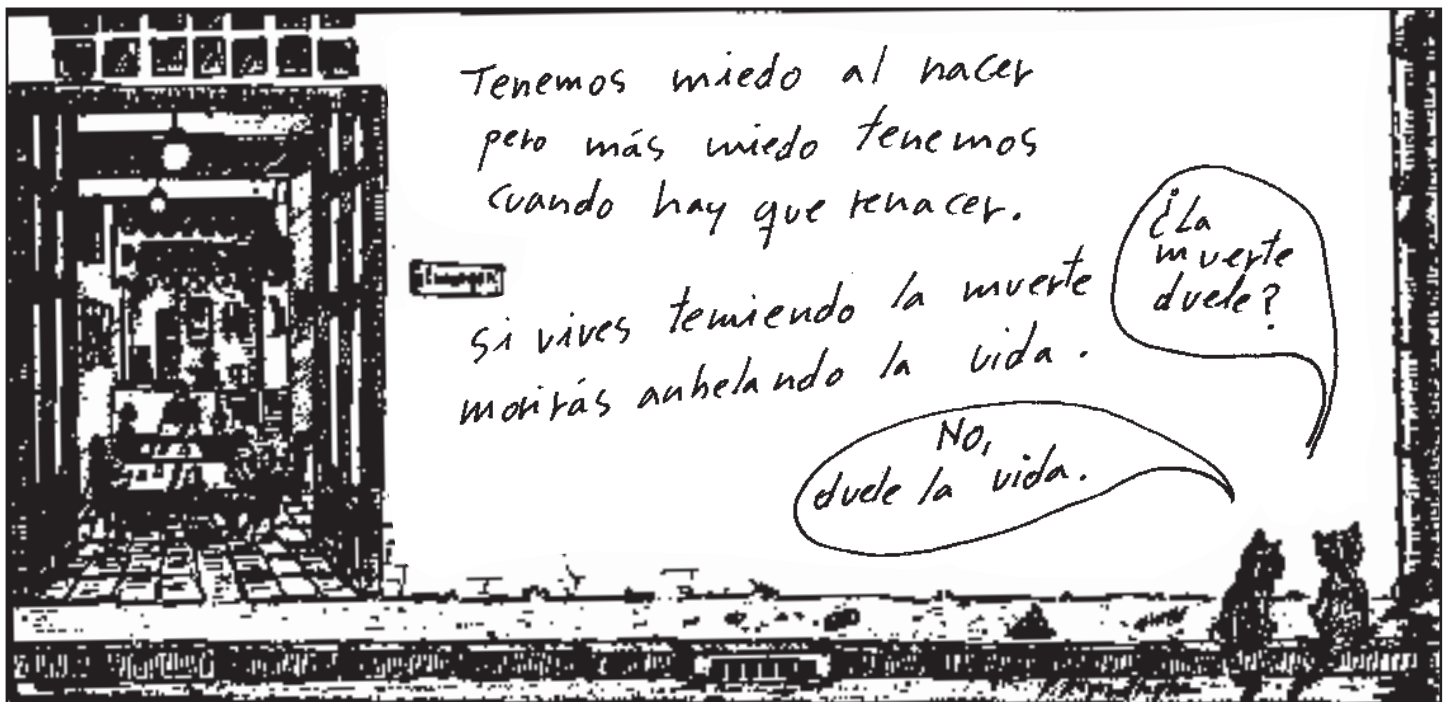 Tenemos miedo al nacer
pero más miedo tenemos
cuando hay que renacer.
si vives temiendo la muerte
morirás anhelando la vida.
¿La
muerte
duele?
No,
duele la vida.